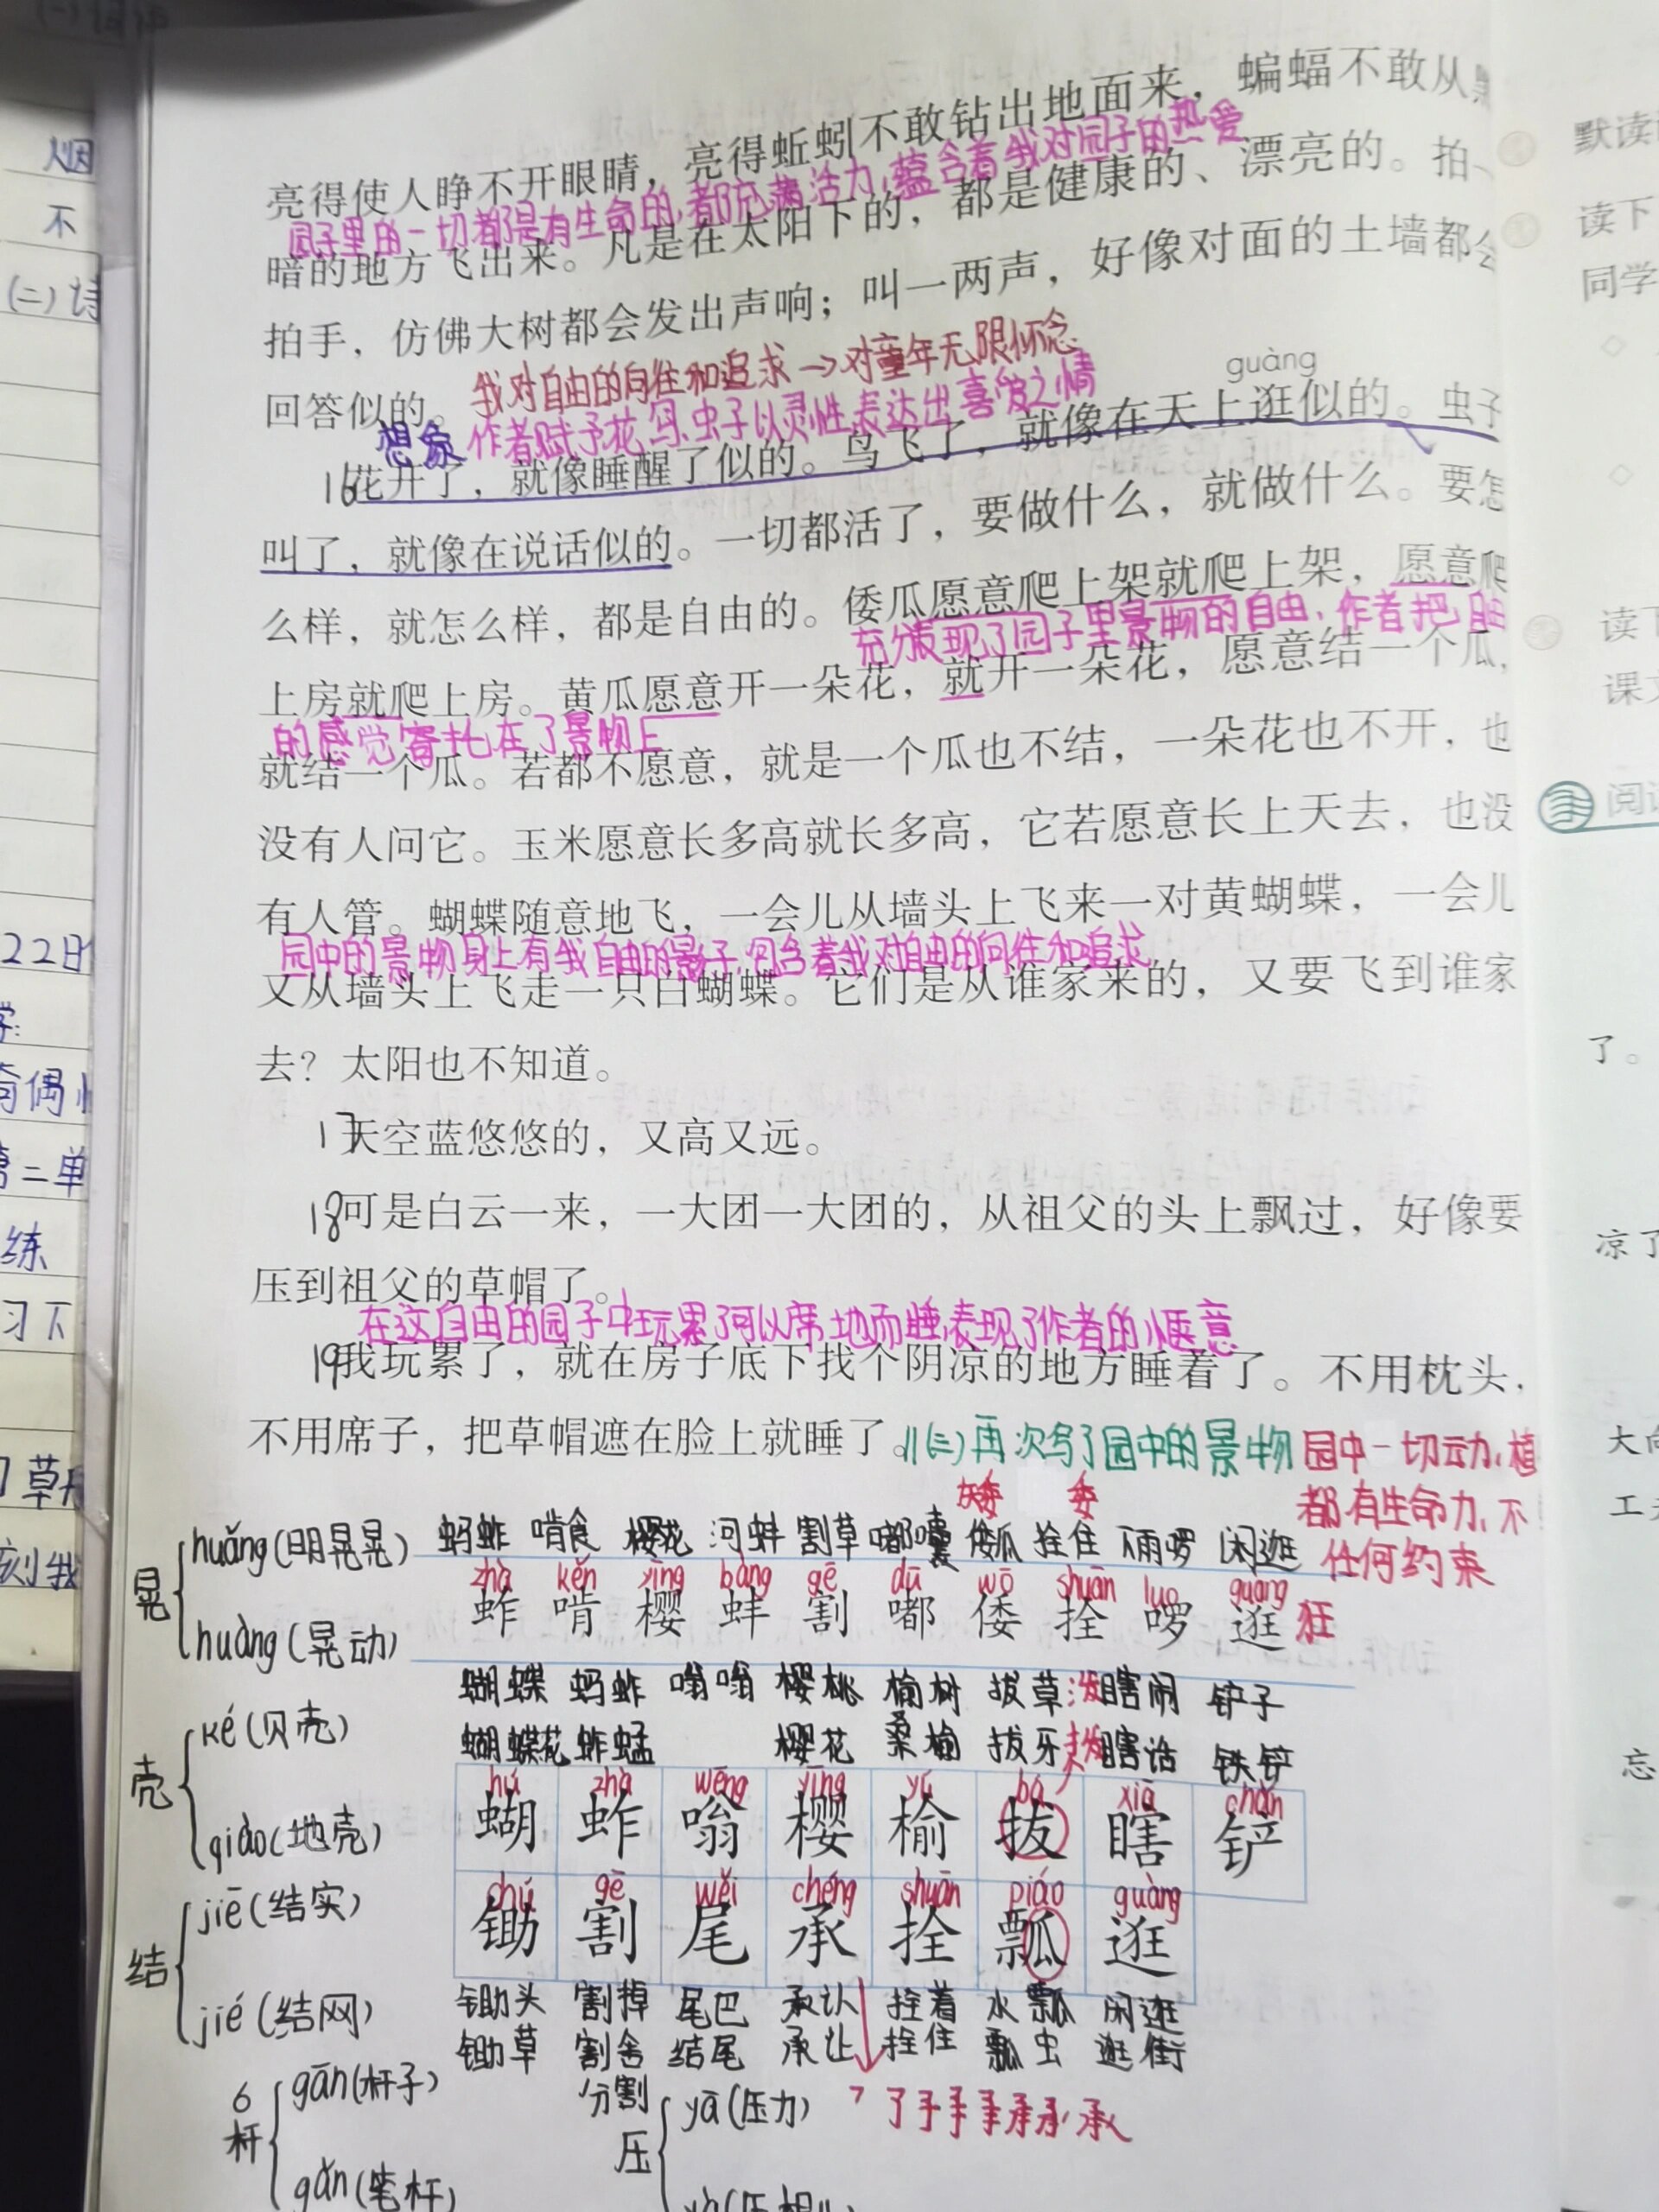 亮得使人睁不开眼睛，亮得蚯蚓不敢钻出地面来，蝙蝠不敢从黑
园子里的一切都是有生命的,都充满活力,蕴含着我对园子的热爱
暗的地方飞出来。凡是在太阳下的，都是健康的、漂亮的。拍一
拍手，仿佛大树都会发出声响；叫一两声，好像对面的土墙都会
回答似的。
我对自由的向往和追求→对童年无限怀念
guàng
想象 作者赋予花、鸟、虫子以灵性表达出喜爱之情
16花开了，就像睡醒了似的。鸟飞了，就像在天上逛似的。虫子
叫了，就像在说话似的。一切都活了，要做什么，就做什么。要怎
么样，就怎么样，都是自由的。倭瓜愿意爬上架就爬上架，愿意爬
充分表现了园子里景物的自由,作者把自由
上房就爬上房。黄瓜愿意开一朵花，就开一朵花，愿意结一个瓜，
的感觉寄托在了景物上
就结一个瓜。若都不愿意，就是一个瓜也不结，一朵花也不开，也
没有人问它。玉米愿意长多高就长多高，它若愿意长上天去，也没
有人管。蝴蝶随意地飞，一会儿从墙头上飞来一对黄蝴蝶，一会儿
园中的景物身上有我自由的影子,包含着我对自由的向往和追求
又从墙头上飞走一只白蝴蝶。它们是从谁家来的，又要飞到谁家
去？太阳也不知道。
17天空蓝悠悠的，又高又远。
18可是白云一来，一大团一大团的，从祖父的头上飘过，好像要
压到祖父的草帽了。
在这自由的园子中玩累了可以席地而睡,表现了作者的惬意
19我玩累了，就在房子底下找个阴凉的地方睡着了。不用枕头，
不用席子，把草帽遮在脸上就睡了。//(三)再次写了园中的景物 园中一切动、植
都有生命力,不
任何约束
晃 huǎng(明晃晃)
huàng(晃动)
蚂蚱 啃食 樱花 河蚌 割草 嘟囔 倭瓜 拴住 闲逛
zhà kěn yīng bàng gē dū wō shuān luo guàng
蚱 啃 樱 蚌 割 嘟 倭 拴 啰 逛 狂
壳 ké(贝壳)
qiào(地壳)
蝴蝶 蚂蚱 嗡嗡 樱桃 榆树 拔草 瞎闹 铲子
蝴蝶花 蚱蜢 樱花 桑榆 拔牙 瞎话 铁铲
hú zhà wēng yīng yú bá xiā chǎn
蝴 蚱 嗡 樱 榆 拔 瞎 铲
结 jiē(结实)
jié(结网)
chú gē wěi chéng shuān piáo guàng
锄 割 尾 承 拴 瓢 逛
锄头 割掉 尾巴 承认 拴着 水瓢 闲逛
锄草 割舍 结尾 承让 拴住 瓢虫 逛街
分割
杆 gān(杆子)
gǎn(笔杆)
压 yā(压力)
默读
读下
同学
读下
课文
阅读
了。
凉了
大向
忘
烟
不
(二)
22日
第二单
练
习下
刻我